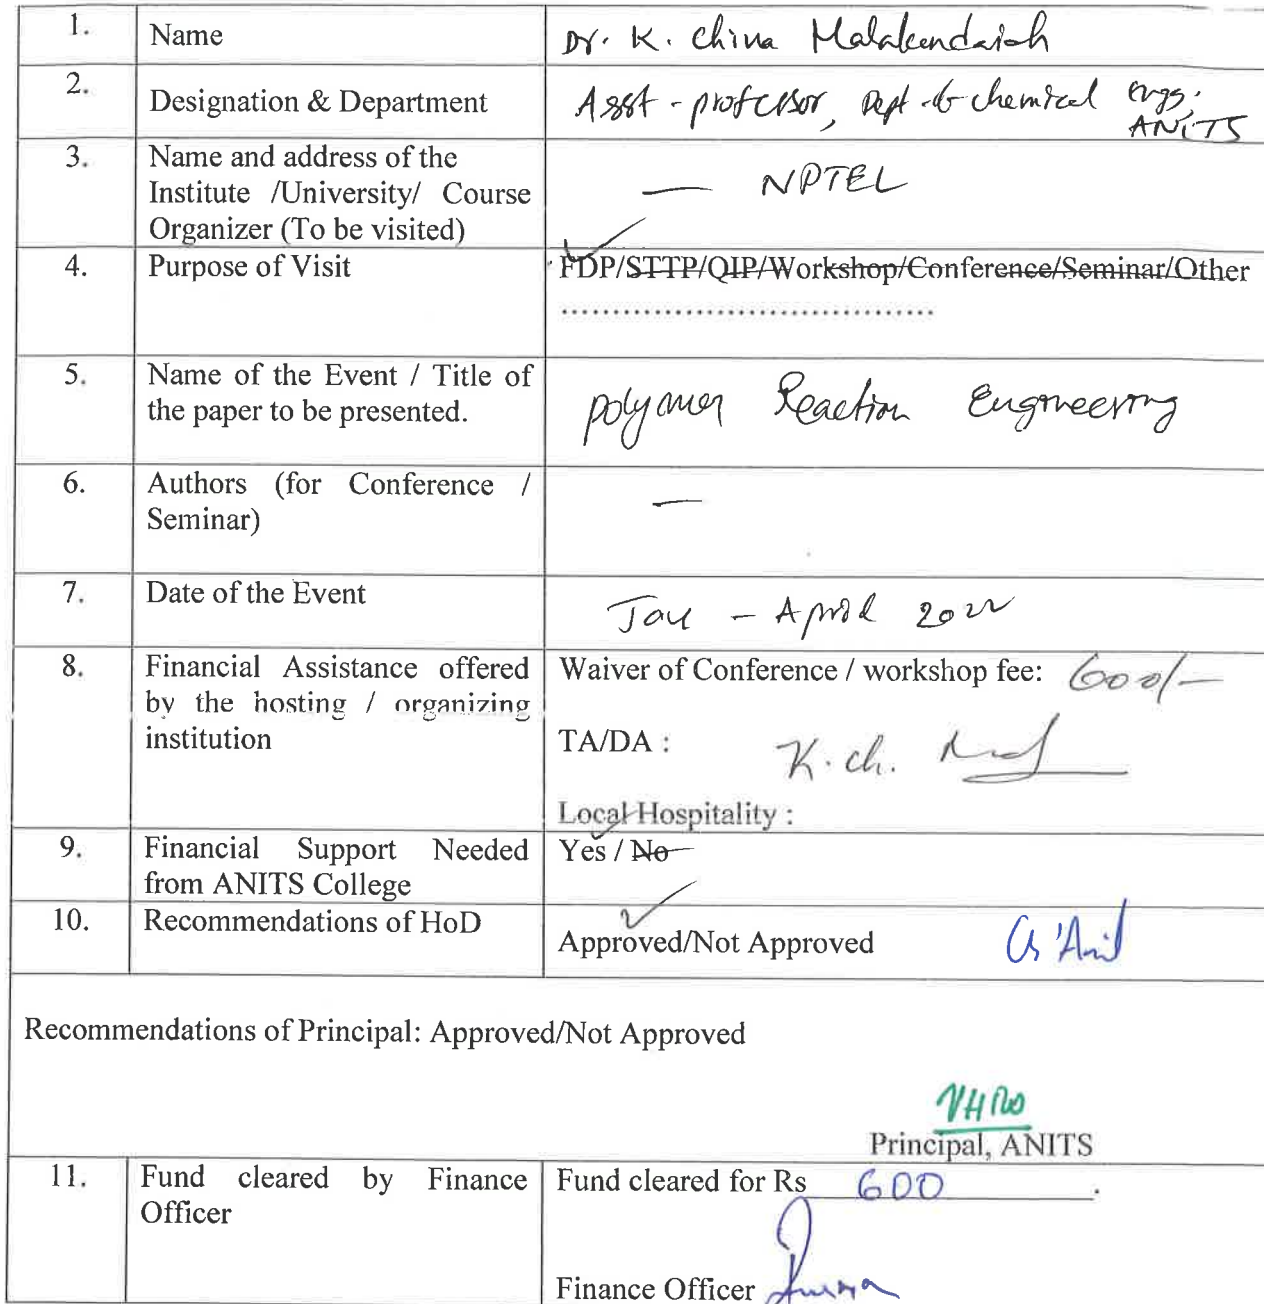 1. Name Dr. K. China Malakondaiah
2. Designation & Department Asst - professor, Dept of chemical engg. ANITS
3. Name and address of the
Institute /University/ Course
Organizer (To be visited)
— NPTEL
4. Purpose of Visit FDP/STTP/QIP/Workshop/Conference/Seminar/Other
....................................
5. Name of the Event / Title of
the paper to be presented.
polymer Reaction Engineering
6. Authors (for Conference /
Seminar)
—
7. Date of the Event Jan - April 2022
8. Financial Assistance offered
by the hosting / organizing
institution
Waiver of Conference / workshop fee: 600/-
TA/DA :
K. ch.
Local Hospitality :
9. Financial Support Needed
from ANITS College
Yes / No
10. Recommendations of HoD
Approved/Not Approved
Recommendations of Principal: Approved/Not Approved
Principal, ANITS
11. Fund cleared by Finance
Officer
Fund cleared for Rs 600 .
Finance Officer